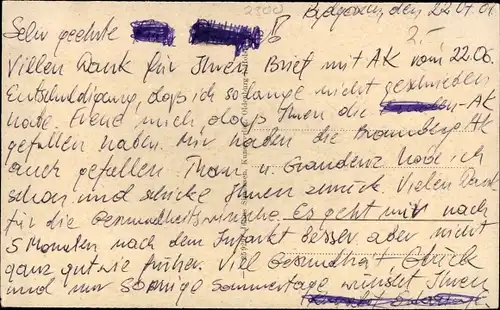 Bydgoszcz, den 22.07.01
2500
2.-
Sehr geehrte
Vielen Dank für Ihren Brief mit AK vom 22.06.
Entschuldigung, daß ich so lange nicht geschrieben
habe. Freue mich, daß Ihnen die -AK
gefallen haben. Mir haben die Bromberg AK
auch gefallen Thorn u. Graudenz habe ich
schon und schicke Ihnen zurück. Vielen Dank
für die Gesundheitswünsche. Es geht mir nach
5 Monaten nach dem Infarkt besser aber nicht
ganz gut wie früher. Viel Gesundheit Glück
und nur sonnige Sommertage wünscht Ihnen